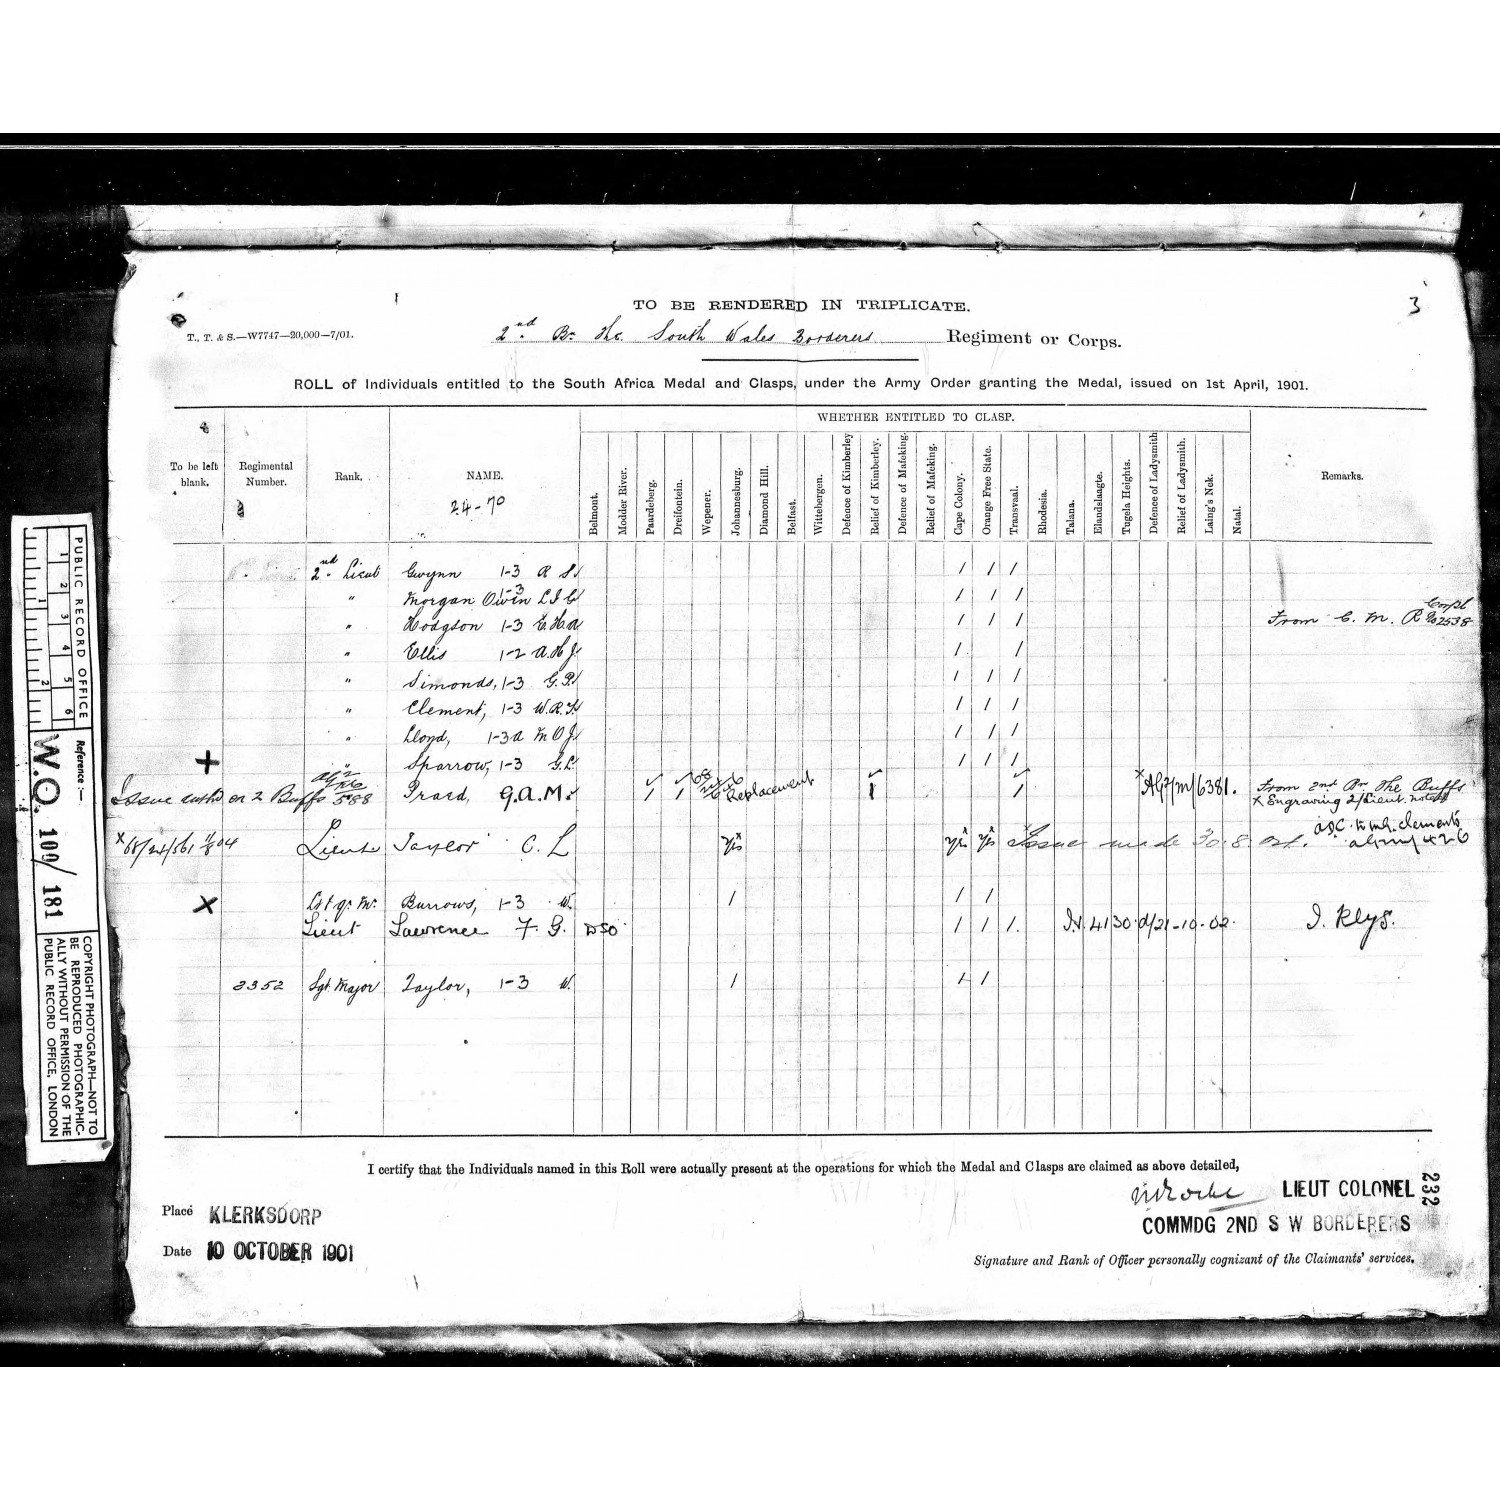 TO BE RENDERED IN TRIPLICATE.
3
T., T. & S.—W7747—20,000—7/01.
2nd Bn The South Wales Borderers Regiment or Corps.
ROLL of Individuals entitled to the South Africa Medal and Clasps, under the Army Order granting the Medal, issued on 1st April, 1901.
WHETHER ENTITLED TO CLASP.
To be left blank.
Regimental Number.
Rank.
NAME.
24-70
Belmont.
Modder River.
Paardeberg.
Dreifontein.
Wepener.
Johannesburg.
Diamond Hill.
Belfast.
Wittebergen.
Defence of Kimberley
Relief of Kimberley.
Defence of Mafeking.
Relief of Mafeking.
Cape Colony.
Orange Free State.
Transvaal.
Rhodesia.
Talana.
Elandslaagte.
Tugela Heights.
Defence of Ladysmith
Relief of Ladysmith.
Laing's Nek.
Natal.
Remarks.
2nd Lieut Gwynn 1-3 R S / / /
" Morgan Owen 1-3 L I G / / /
" Hodgson 1-3 E.H.A / / / From C. M. R Corpl No 2538
" Ellis 1-2 A.H.J. / /
" Simonds, 1-3 G.P. / / /
" Clement, 1-3 W.R.T. / / /
" Lloyd, 1-3 a M O J. / / /
+ " Sparrow, 1-3 G.L. / / /
Issue on 2 Buffs G.A.M. Replacement AG2/M/6381. From 2nd Bn The Buffs
x Engraving 2/Lieut.
x 68/24/561 Lieut Taylor C. L Yes Yes Yes Issue made 30.8. ADC to Clements
X Lt & Qr Mr Burrows, 1-3 W. / / /
Lieut Lawrence F. G. DSO / / / I.V. 4130 d/21-10-02.
2352 Sgt Major Taylor, 1-3 W. / / /
I certify that the Individuals named in this Roll were actually present at the operations for which the Medal and Clasps are claimed as above detailed,
LIEUT COLONEL
COMMDG 2ND S W BORDERERS
232
Place KLERKSDORP
Date 10 OCTOBER 1901
Signature and Rank of Officer personally cognizant of the Claimants' services.
PUBLIC RECORD OFFICE
1 2 3 4 5 6
1 2
Reference :—
W.O. 100/181
COPYRIGHT PHOTOGRAPH—NOT TO
BE REPRODUCED PHOTOGRAPHIC-
ALLY WITHOUT PERMISSION OF THE
PUBLIC RECORD OFFICE, LONDON